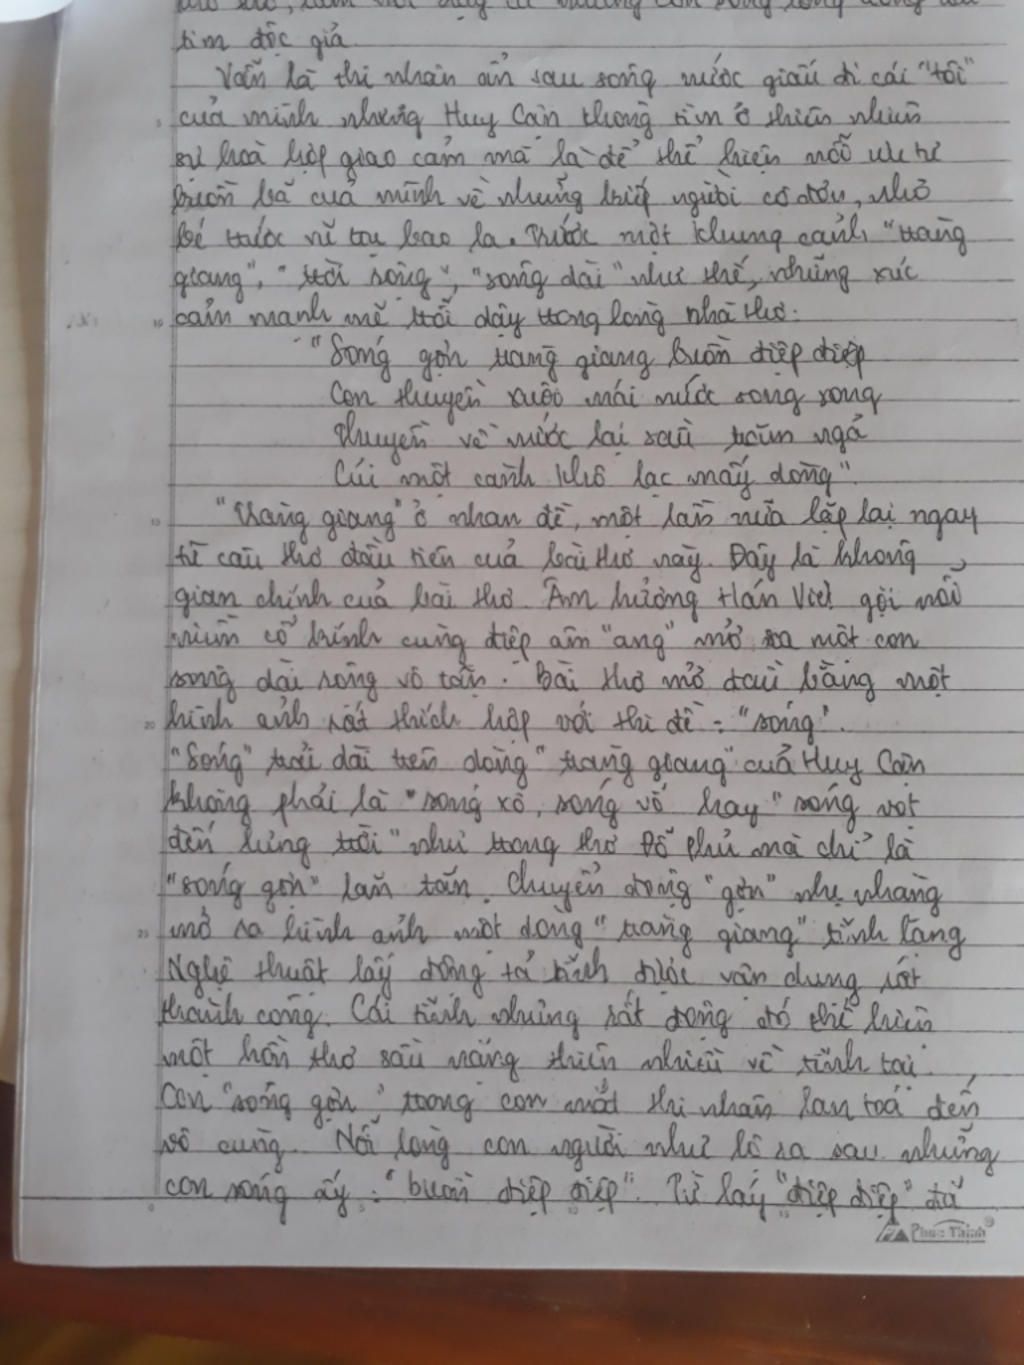 tim độc giả.
Vẫn là thi nhân ẩn sau sóng nước giấu đi cái "tôi"
của mình nhưng Huy Cận không tìm ở thiên nhiên
sự hoà hợp giao cảm mà là để thể hiện nỗi ưu tư
buồn bã của mình về những kiếp người cô đơn, nhỏ
bé trước vũ trụ bao la. Trước một khung cảnh "tràng
giang", "trời rộng", "sông dài" như thế, những xúc
cảm mạnh mẽ trỗi dậy trong lòng nhà thơ:
"Sóng gợn tràng giang buồn điệp điệp
Con thuyền xuôi mái nước song song
Thuyền về nước lại sầu trăm ngả
Củi một cành khô lạc mấy dòng".
"Tràng giang" ở nhan đề, một lần nữa lặp lại ngay
từ câu thơ đầu tiên của bài thơ này. Đây là không
gian chính của bài thơ. Âm hưởng Hán Việt gợi nỗi
niềm cổ kính cùng điệp âm "ang" mở ra một con
sông dài rộng vô tận. Bài thơ mở đầu bằng một
hình ảnh rất thích hợp với thi đề: "sóng".
"Sóng" trải dài trên dòng "tràng giang" của Huy Cận
không phải là "sóng xô, sóng vỗ hay "sóng vọt
đến lưng trời" như trong thơ Đỗ Phủ mà chỉ là
"sóng gợn" lăn tăn. Chuyển động "gợn" nhẹ nhàng
mở ra hình ảnh một dòng "tràng giang" tĩnh lặng
Nghệ thuật lấy động tả tĩnh được vận dụng rất
thành công. Cái tĩnh nhưng rất động đó thể hiện
một hồn thơ sâu nặng thiên nhiên về tĩnh tại.
Con "sóng gợn" trong con mắt thi nhân lan toả đến
vô cùng. Nỗi lòng con người như lộ ra sau những
con sóng ấy: "buồn điệp điệp". Từ láy "điệp điệp" đã
Phúc Thịnh